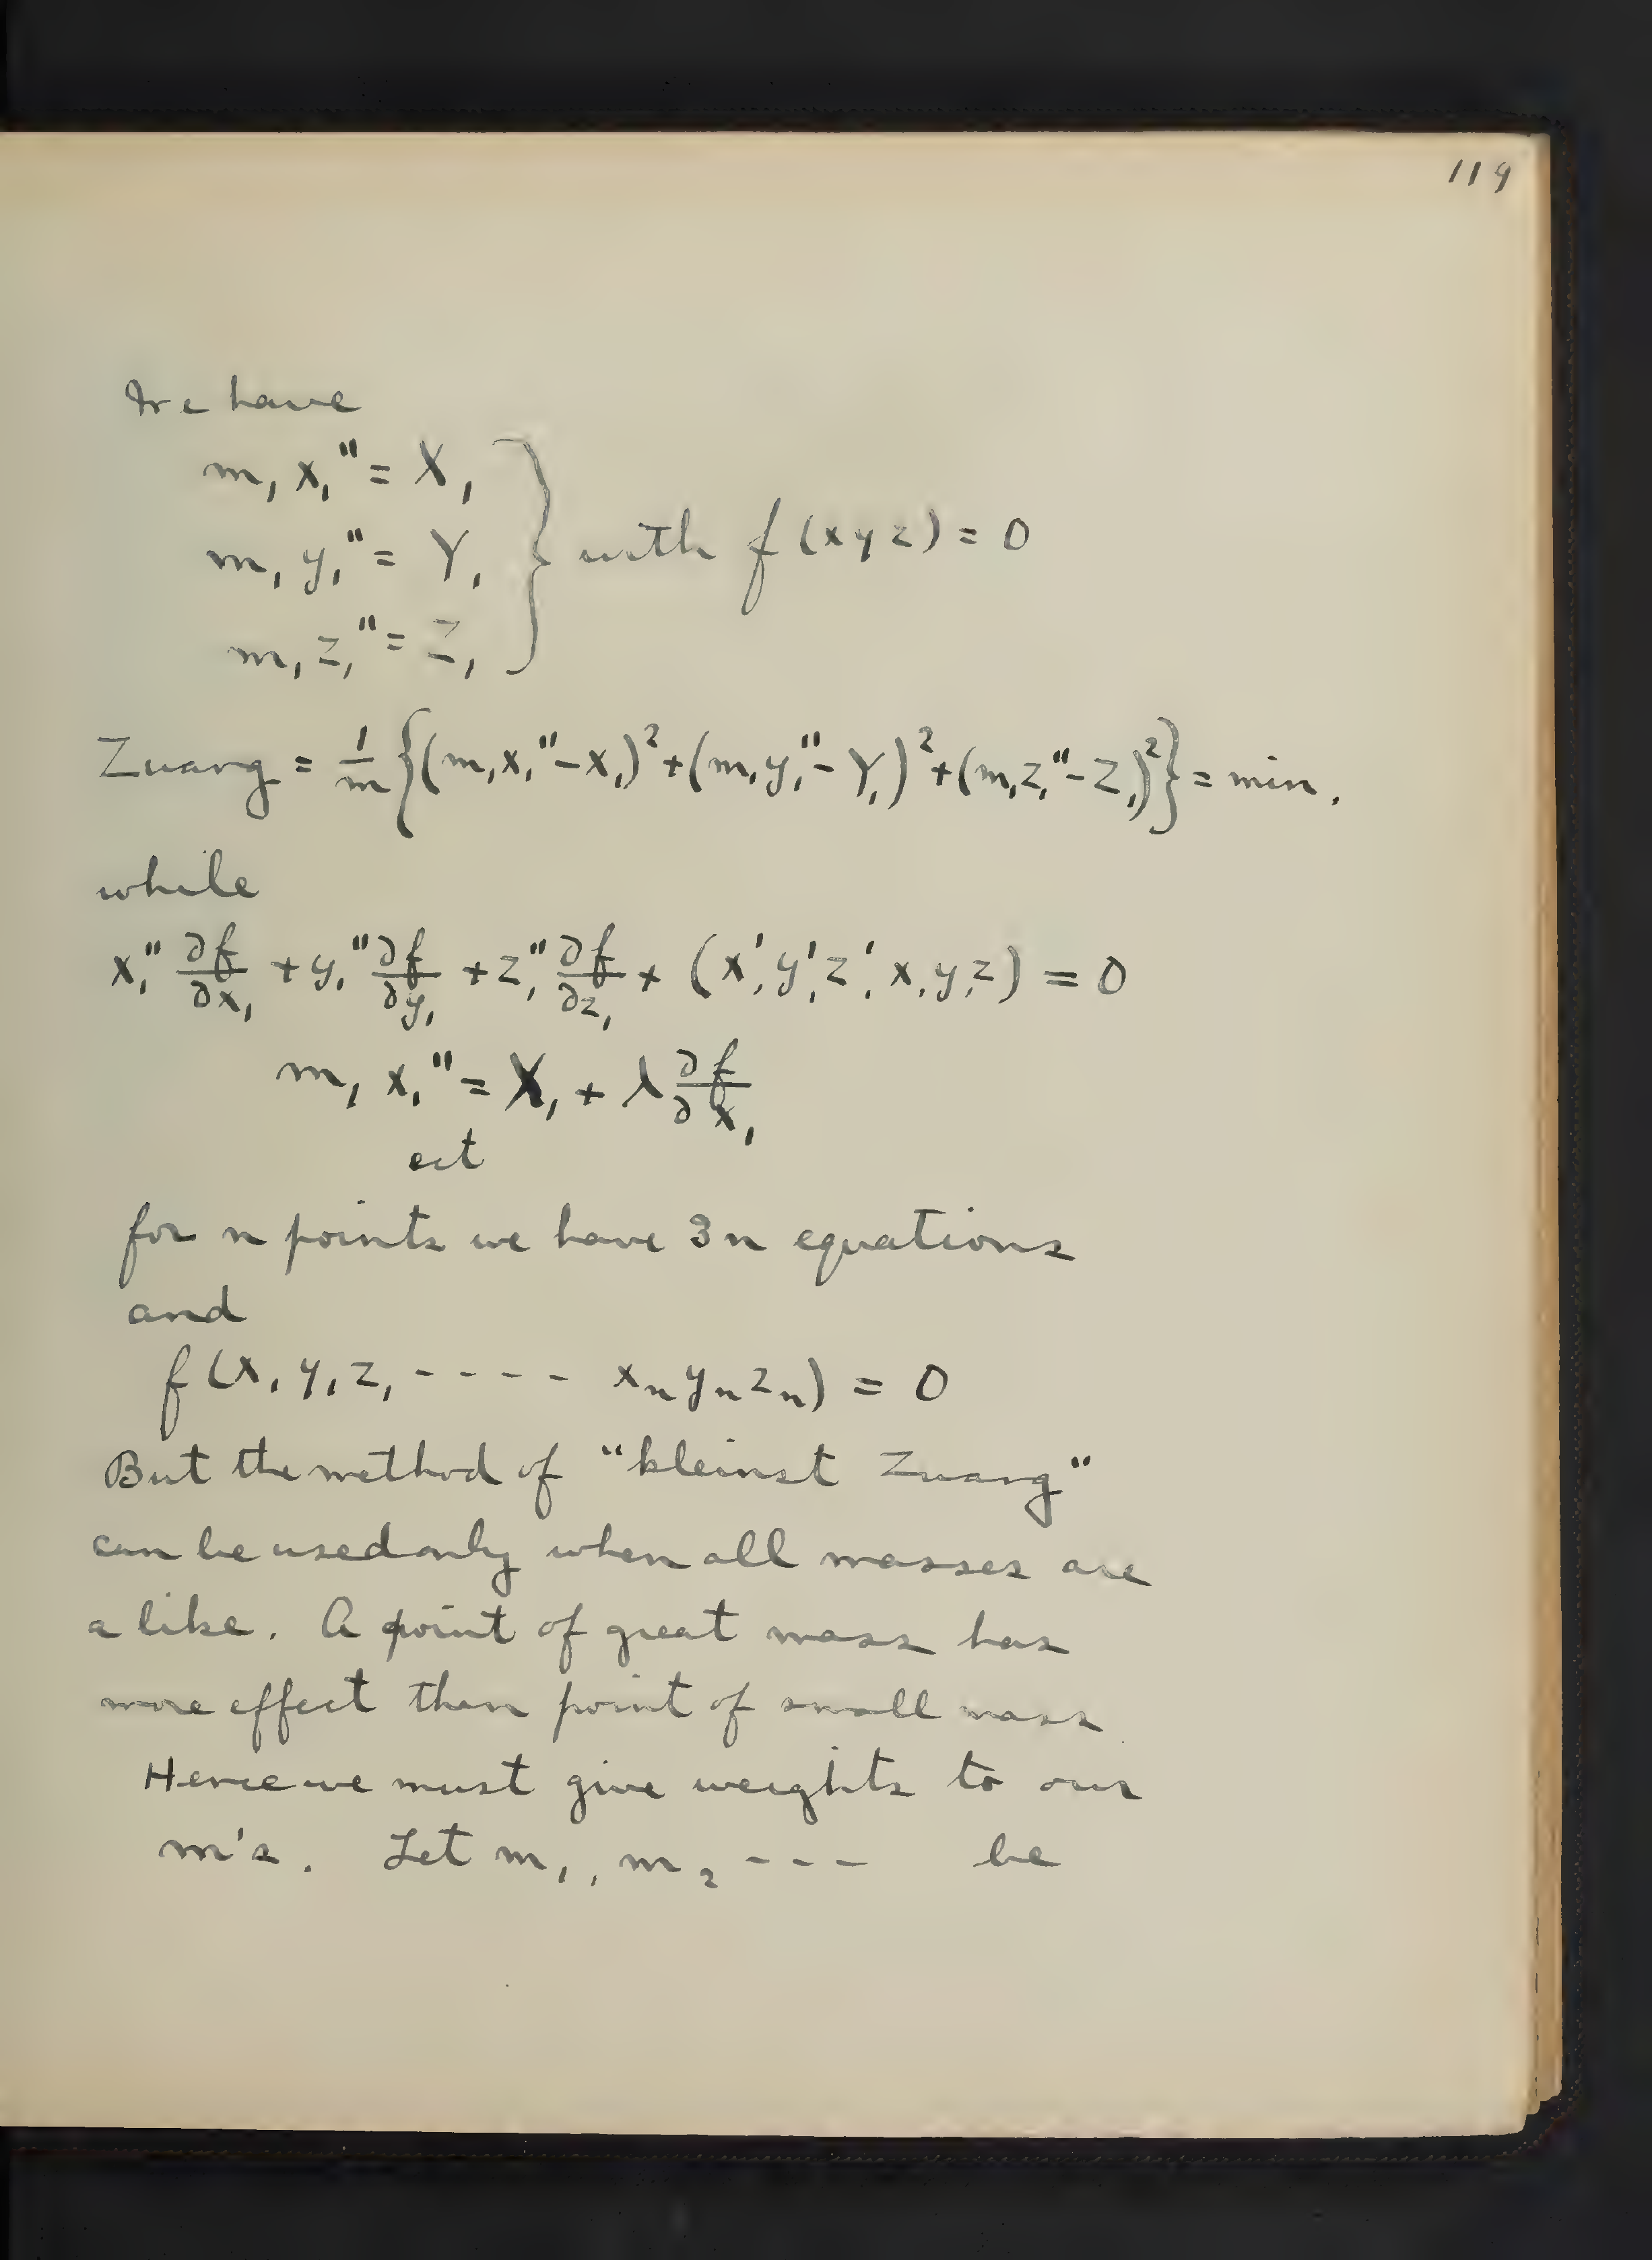 119
We have
m₁ x₁" = X₁
m₁ y₁" = Y₁ } with f (x y z) = 0
m₁ z₁" = Z₁
Zwang = 1/m {(m₁x₁"-X₁)² + (m₁y₁"- Y₁)² + (m₁z₁"- Z₁)²} = min.
while
x₁" ∂f/∂x₁ + y₁" ∂f/∂y₁ + z₁" ∂f/∂z₁ + (x₁' y₁' z₁' x₁ y₁ z₁) = 0
m₁ x₁" = X₁ + λ ∂f/∂x₁
ect
for n points we have 3n equations
and
f (x₁ y₁ z₁ - - - - xₙ yₙ zₙ) = 0
But the method of "kleinst Zwang"
can be used only when all masses are
alike. A point of great mass has
more effect than point of small mass
Hence we must give weights to our
m's. Let m₁, m₂ - - - be